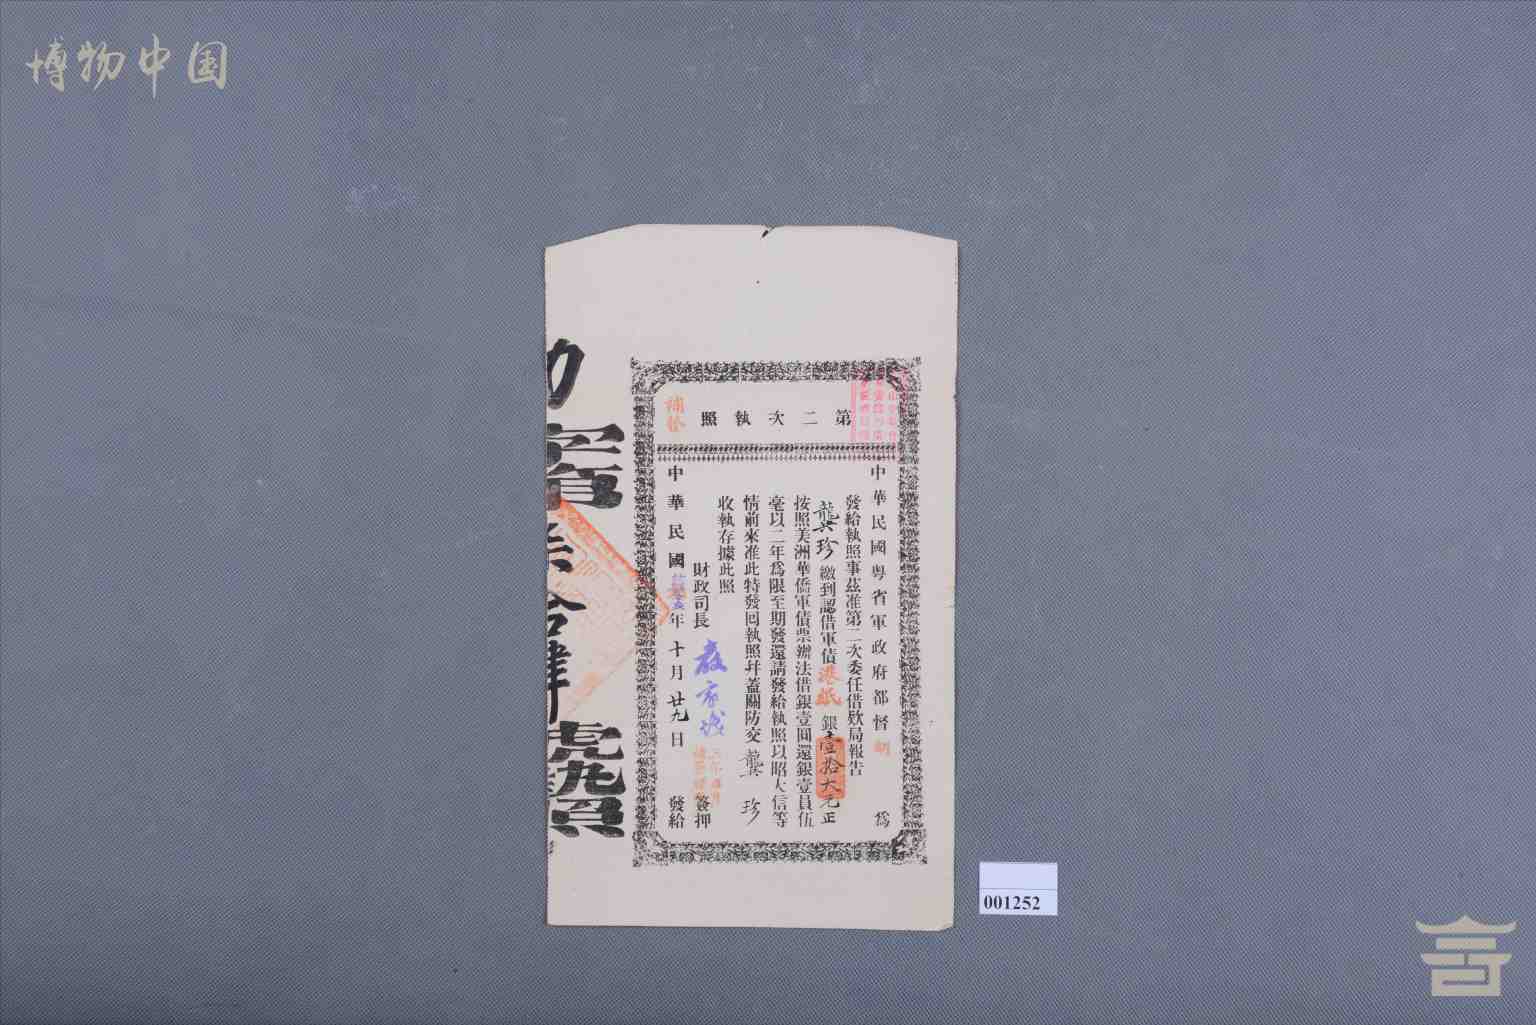 博物中国
第二次執照
補發
中華民國粵省軍政府都督胡 爲
發給執照事茲准第二次委任借欵局報告
龔珍繳到認借軍債港紙銀壹拾大元正
按照美洲華僑軍債票辦法借銀壹圓還銀壹員伍
毫以二年爲限至期發還請發給執照以昭大信等
情前來准此特發回執照幷蓋關防交龔珍
收執存據此照
財政司長 簽押
中華民國 年十月廿九日 發給
拾肆號照
001252